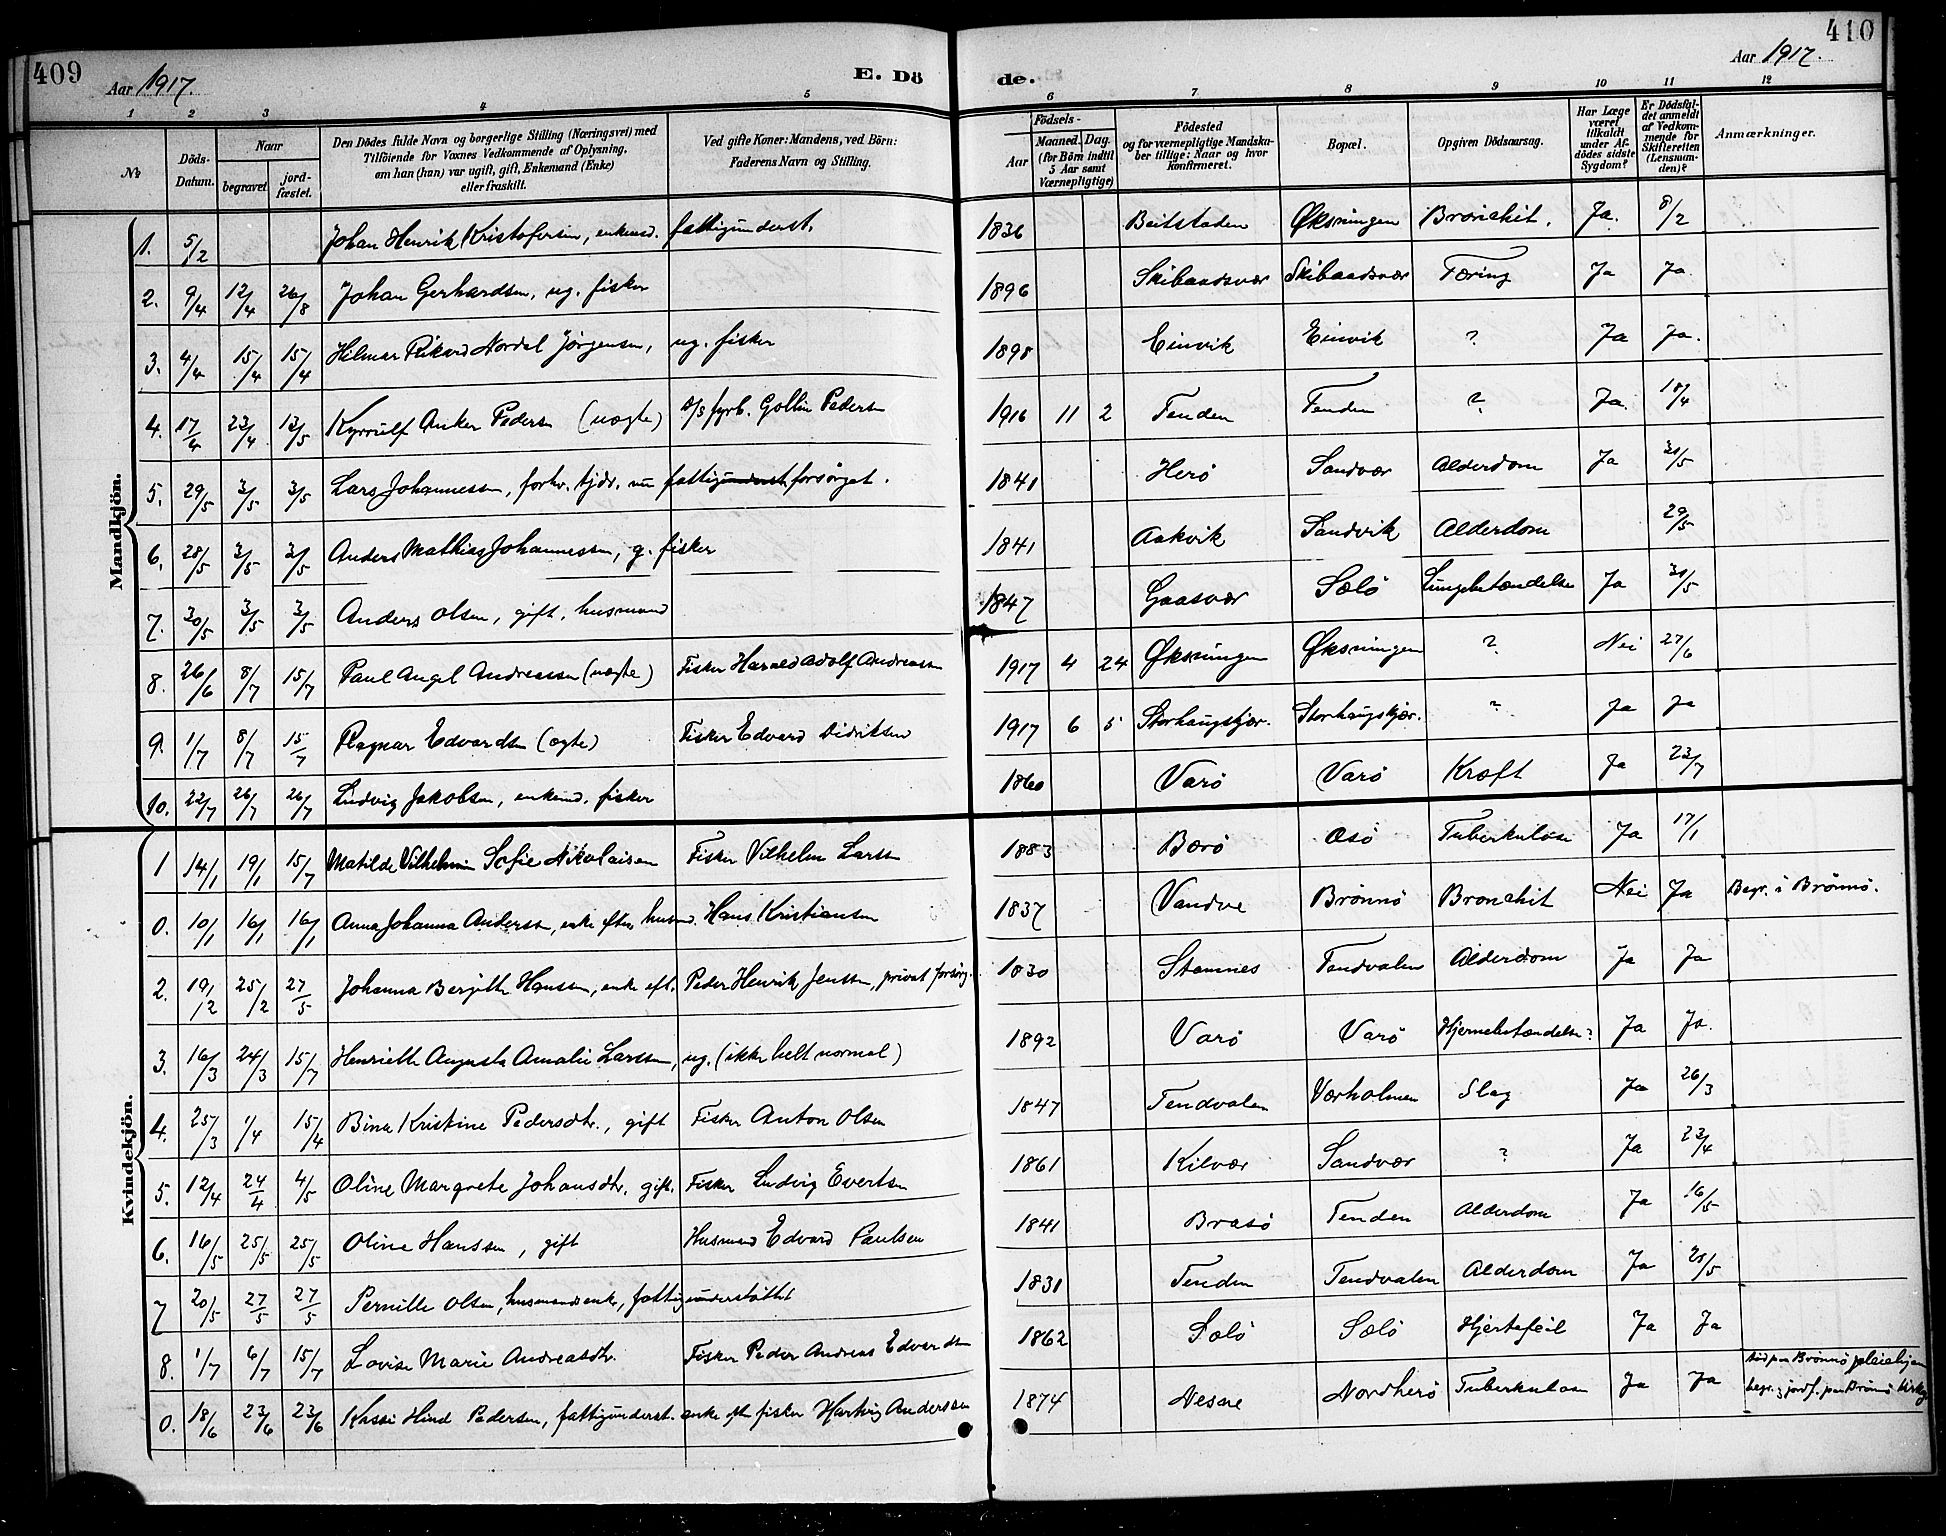 409
Aar 1917.
E. Dö
de.
Aar 1917.
410
1 2 3 4 5 6 7 8 9 10 11 12
№
Döds-Datum.
Naar
begravet
jordfæstet.
Den Dödes fulde Navn og borgerlige Stilling (Næringsvei) med
Tilföiende for Voxnes Vedkommende af Oplysning,
om han (hun) var ugift, gift, Enkemand (Enke)
eller fraskilt.
Ved gifte Koner: Mandens, ved Börn:
Faderens Navn og Stilling.
Födsels-
Aar
Maaned. Dag.
(for Börn indtil 5 Aar samt Værnepligtige)
Födested
og for værnepligtige Mandskaber tillige: Naar og hvor konfirmeret.
Bopæl.
Opgiven Dödsaarsag.
Har Læge været tilkaldt under Afdödes sidste Sygdom?
Er Dödsfaldet anmeldt af Vedkommende for Skifteretten (Lensmanden)?
Anmærkninger.
Mandkjön.
1. 5/2 Johan Henrik Kristofersen, enkemd. fattigunderst. 1836 Beitstaden Øksningen Bronchit. Ja. 8/2
2. 9/4 12/4 26/8 Johan Gerhardsen, ug. fisker 1896 Skibaadsvær Skibaadsvær Tæring Ja Ja.
3. 4/4 15/4 15/4 Hilmar Rikard Nordal Jørgensen, ug. fisker 1898 Einvik Einvik ? Ja Ja.
4. 17/4 23/4 13/5 Kyrrulf Anker Pedersn (uægte) Gollin Pedersn 1916 11 2 Tenden Tenden ? Ja. 18/4
5. 29/5 3/5 3/5 Lars Johannessen, forhv. tjdr. nu fattigunderst forsørget. 1841 Herö Sandvær Alderdom Ja 31/5
6. 28/5 3/5 3/5 Anders Mathias Johannessen, g. fisker 1841 Aakvik Sandvik Alderdom 29/5
7. 30/5 3/5 3/5 Anders Olsen, gift, husmand 1847 Gaasvær Sælö Lungebetændelse Ja 31/5
8. 26/6 8/7 15/7 Paul Angel Andreassen (uægte) Fisker Harald Adolf Andreassen 1917 4 24 Øksningen Øksningen ? Nei 27/6
9. 1/7 8/7 15/7 Ragnar Edvardsen (ægte) Fisker Edvard Didriksen 1917 6 5 Storhaugskjær. Storhaugskjær. ? Ja Ja
10. 22/7 26/7 26/7 Ludvig Jakobsen, enkemd. fisker 1860 Varö Varö Kræft Ja 23/7
Kvindekjön.
1 14/1 19/1 15/7 Matilde Vilhelmine Sofie Nikolaisen Fisker Vilhelm Larsen 1883 Borö Osö Tuberkulose Ja 17/1
0. 10/1 16/1 16/1 Anna Johanna Andersen, enke efter husmd. Hans Kristiansen 1837 Vandve Brönnö Bronchit Nei Ja Begr. i Brönnö.
2. 19/2 25/2 27/5 Johanna Bergitte Hanssen, enke eft. Peder Henrik Jenssen, privat forsörg. 1830 Stamnes Tendvalen Alderdom Ja Ja
3. 16/3 24/3 15/7 Henriette Augusta Amalie Larssen, ug. (ikke helt normal) 1892 Varö Varö Hjernebetændelse? Ja Ja.
4. 25/3 1/4 15/4 Bina Kristine Pedersdtr., gift Fisker Anton Olsen 1847 Tendvalen Værholmen Slag Ja 26/3
5. 12/4 24/4 4/5 Oline Margrete Johansdtr. gift. Fisker Ludvig Evertsen 1861 Kilvær Sandvær ? Ja 23/4
6. 16/5 25/5 25/5 Oline Hanssen, gift Husmand Edvard Paulsen 1841 Brasö Tenden Alderdom Ja 16/5
7 20/5 27/5 27/5 Pernille Olsen, husmandsenke, fattigunderstöttet 1831 Tenden Tendvalen Alderdom Ja 21/5
8. 1/7 6/7 15/7 Lovise Marie Andreasdtr. Fisker Peder Andreas Edvardsen 1862 Sælö Sælö Hjertefeil Ja Ja
0. 18/6 23/6 23/6 Hind Pedersen, fattigunderst. enke eft fisker Hartvig Anderssen 1874 Nesne Nordherö Tuberkulose Ja Ja död paa Brönnö pleiehjem begr. & jordf. paa Brönnö kirkeg